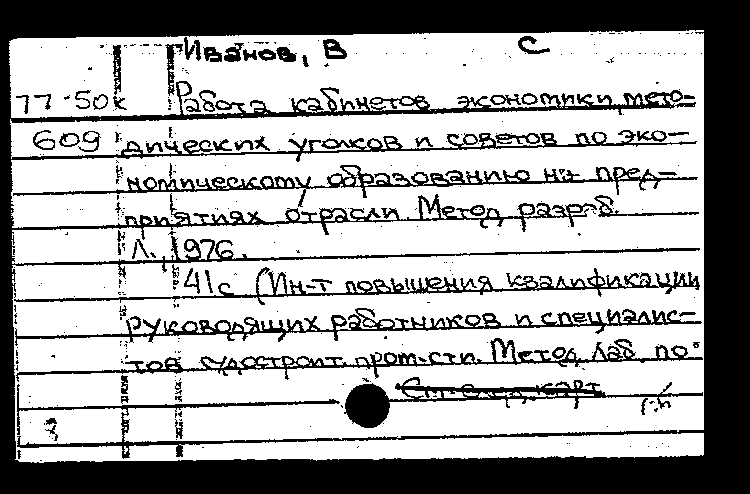 Иванов, В С
77-50к Работа кабинетов экономики, мето-
609 дических уголков и советов по эко-
номическому образованию на пред-
приятиях отрасли Метод. разраб.
Л., 1976.
41с (Ин-т повышения квалификации
руководящих работников и специалис-
тов судостроит. пром-сти. Метод. лаб. по